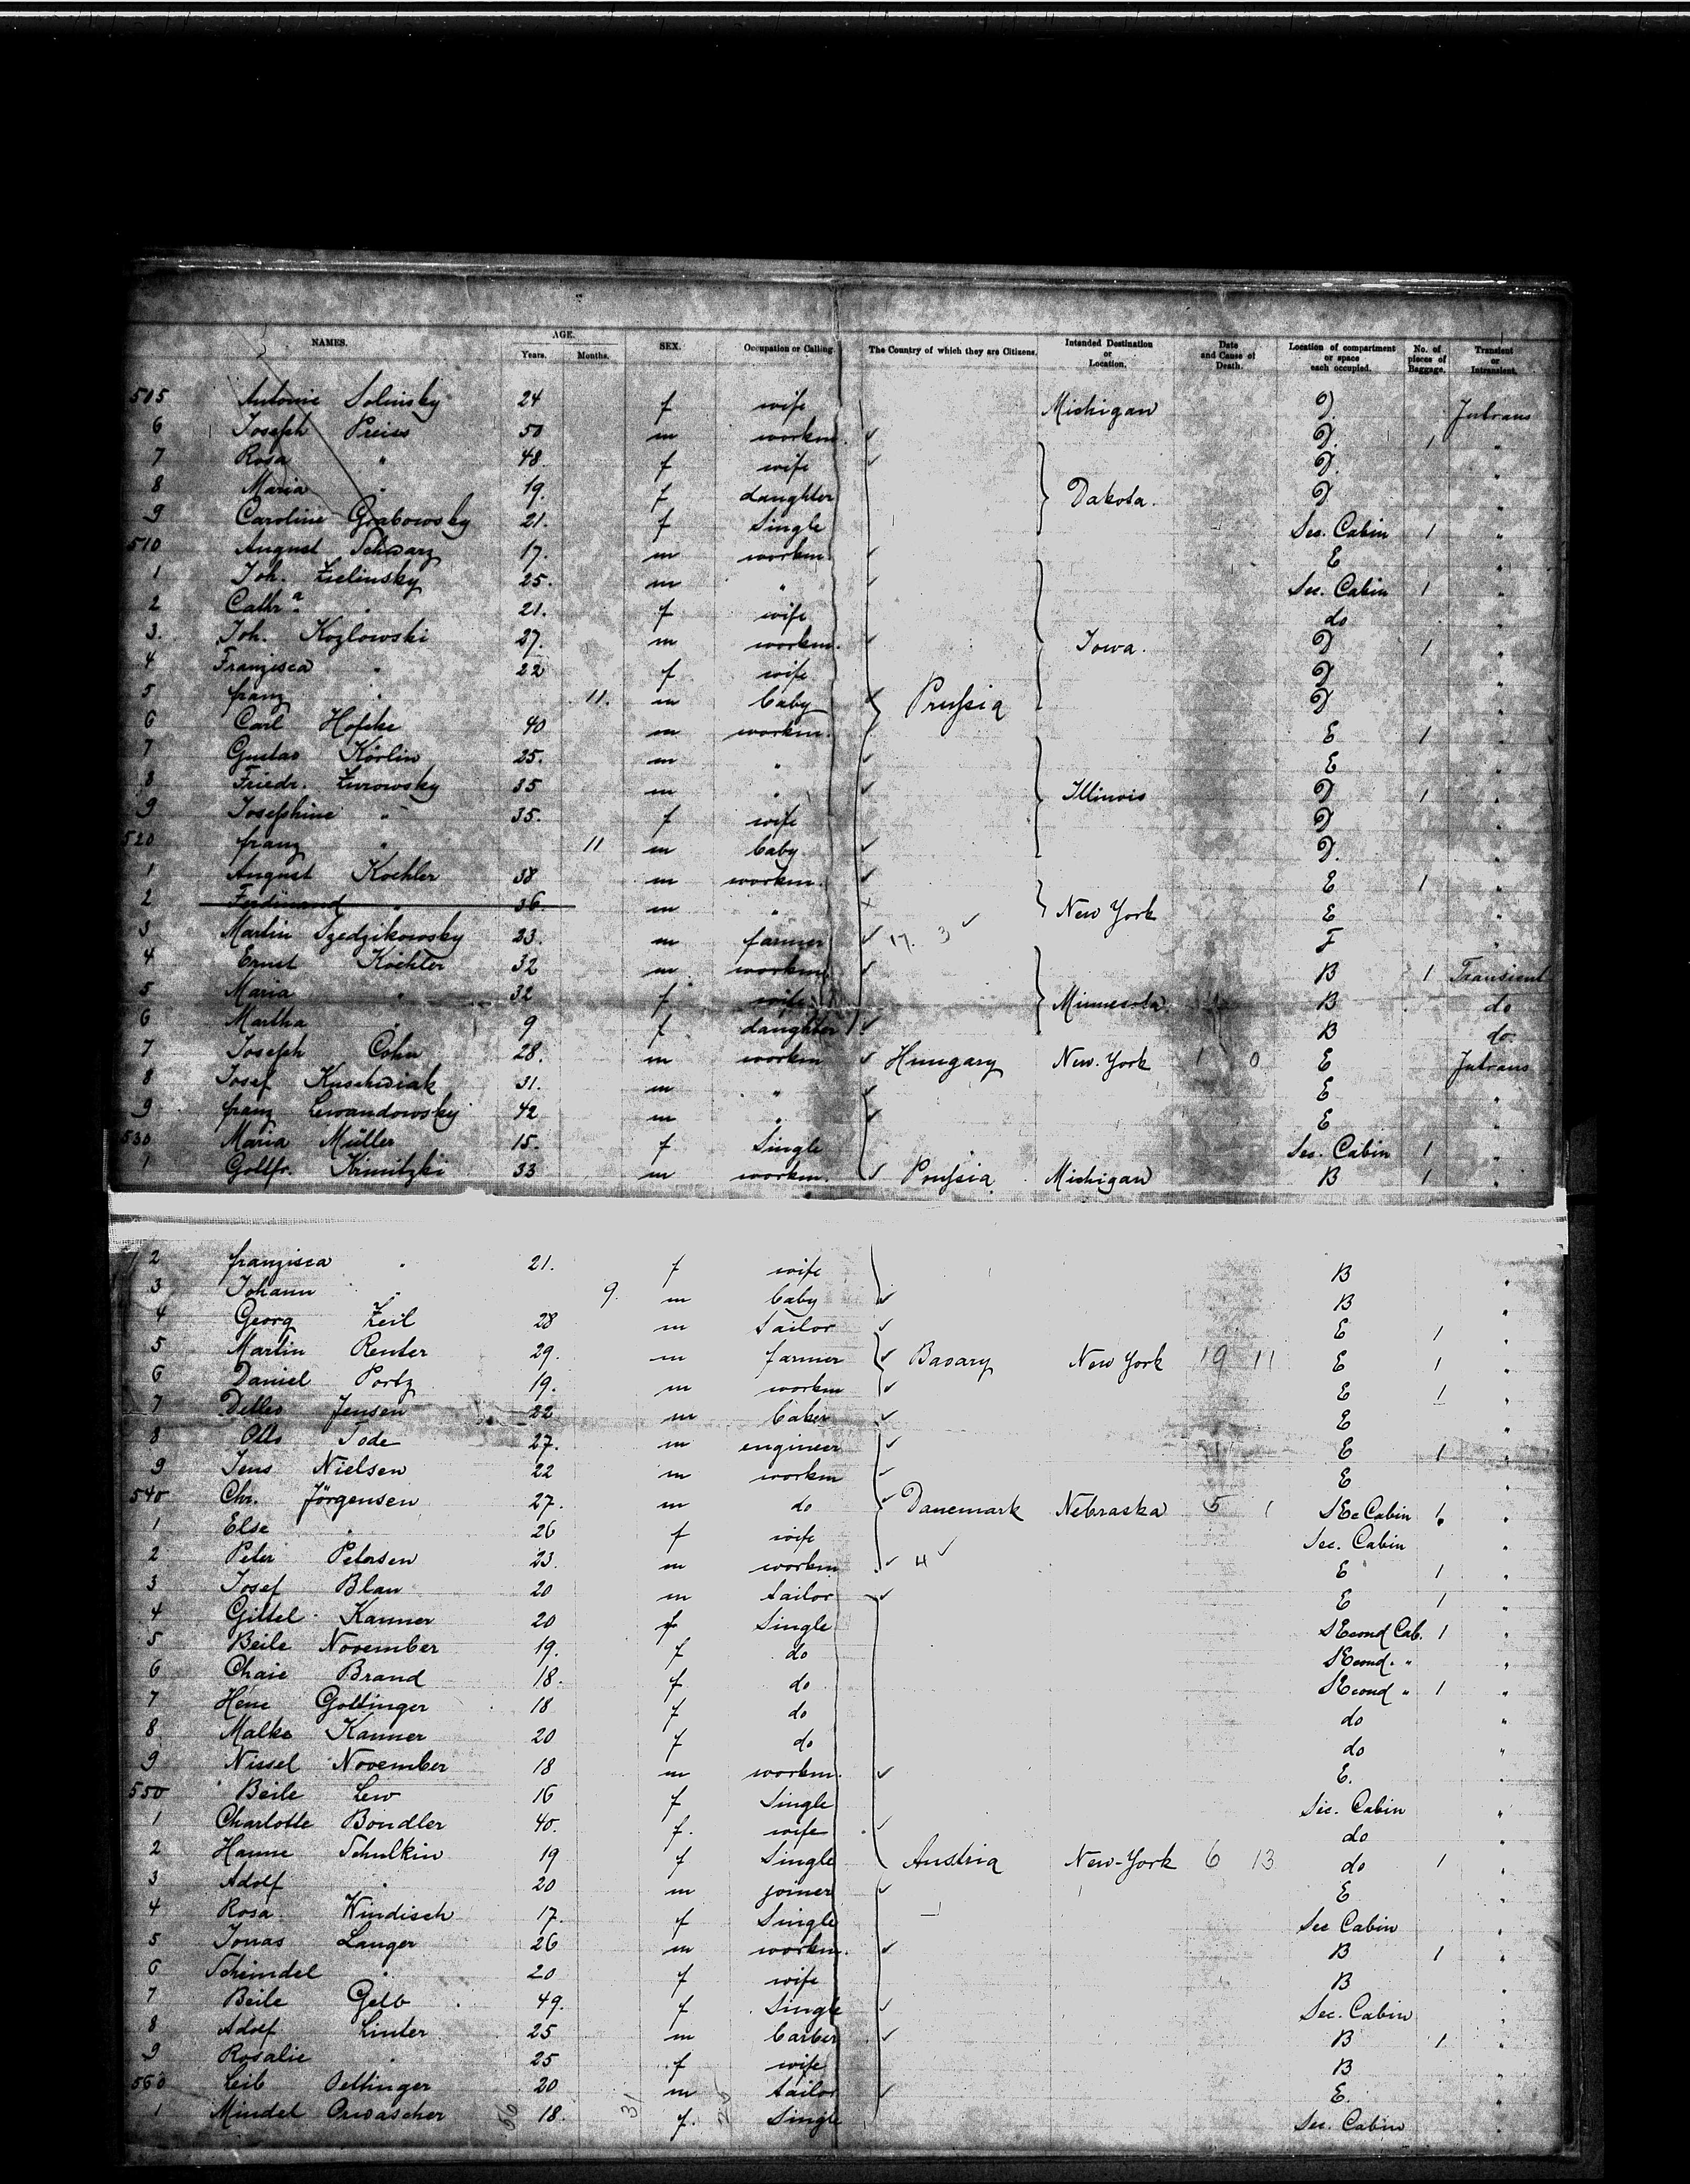 NAMES. AGE. SEX. Occupation or Calling. The Country of which they are Citizens. Intended Destination or Location. Date and Cause of Death. Location of compartment or space each occupied. No. of pieces of Baggage. Transient or Intransient.
Years. Months.
505 Antonie Solinsky 24 f wife Michigan D. Intrans
6 Joseph Preiss 50 m workm. D. 1 "
7 Rosa " 48 f wife D. "
8 Maria " 19. f daughter Dakota. D. "
9 Caroline Grabowsky 21. f Single Sec. Cabin 1 "
510 August Schwarz 17. m workm. E "
1 Joh. Zielinsky 25. m " Sec. Cabin 1 "
2 Cathra " 21. f wife do "
3. Joh. Kozlowski 27. m workm. Iowa. D 1 "
4 Franzisca " 22 f wife D "
5 franz " 11. m baby Prussia D "
6 Carl Hopke 40 m workm. E 1 "
7 Gustav Körlin 25. m " E "
8 Friedr. Zurowsky 35 m " Illinois D 1 "
9 Josephine " 35. f wife D "
520 franz " 11 m baby D. "
1 August Koehler 38 m workm. E 1 "
2 Ferdinand " 36. m " New York E "
3 Martin Szedzikowsky 23. m farmer 17. 3 F "
4 Ernst Köehler 32 m workm B 1 Transient
5 Maria " 32 f wife Minnesota. B do
6 Martha " 9 f daughter B do.
7 Joseph Cohn 28. m workm Hungary New-York 1 0 E Intrans
8 Josef Kuschwiak 31. m " E "
9 franz Lewandowsky 42 m " E "
530 Maria Müller 15. f Single Sec. Cabin 1 "
1 Gottfr. Krimitzki 33 m workm. Prussia Michigan B 1 "
2 franzisca " 21. f wife B "
3 Johann " 9. m baby B "
4 Georg Zeil 28 m Tailor E 1 "
5 Martin Renter 29. m farmer Bavary New York 19 11 E 1 "
6 Daniel Portz 19. m workm E 1 "
7 Detlev Jensen 22 m baker E "
8 Otto Tode 27. m engineer E 1 "
9 Jens Nielsen 22 m workm E "
540 Chr. Jörgensen 27. m do Danemark Nebraska 5 1 SEc Cabin 1 "
1 Else " 26 f wife Sec. Cabin "
2 Peter Petersen 23. m workm 4 E 1 "
3 Josef Blau 20 m tailor E 1 "
4 Gittel Kanner 20 f Single SEcond Cab. 1 "
5 Beile November 19. f do SEcond. " "
6 Chaie Brand 18. f do SEcond " 1 "
7 Hene Gottinger 18 f do do "
8 Malke Kanner 20 f do do "
9 Nissel November 18 m workm. E. "
550 Beile Lew 16 f Single Sec. Cabin "
1 Charlotte Bondler 40. f. wife do "
2 Hanne Schulkin 19 f Single Austria New-York 6 13 do 1 "
3 Adolf " 20 m joiner E "
4 Rosa Windisch 17. f Single Sec Cabin "
5 Jonas Langer 26 m workm. B 1 "
6 Scheindel " 20 f wife B "
7 Beile Gelb 49. f Single Sec. Cabin "
8 Adolf Linter 25 m barber B 1 "
9 Rosalie " 25 f wife B "
560 Leib Oettinger 20 m tailor E. "
1 Mindel Orwascher 18. f. Single Sec. Cabin "
56 31 25